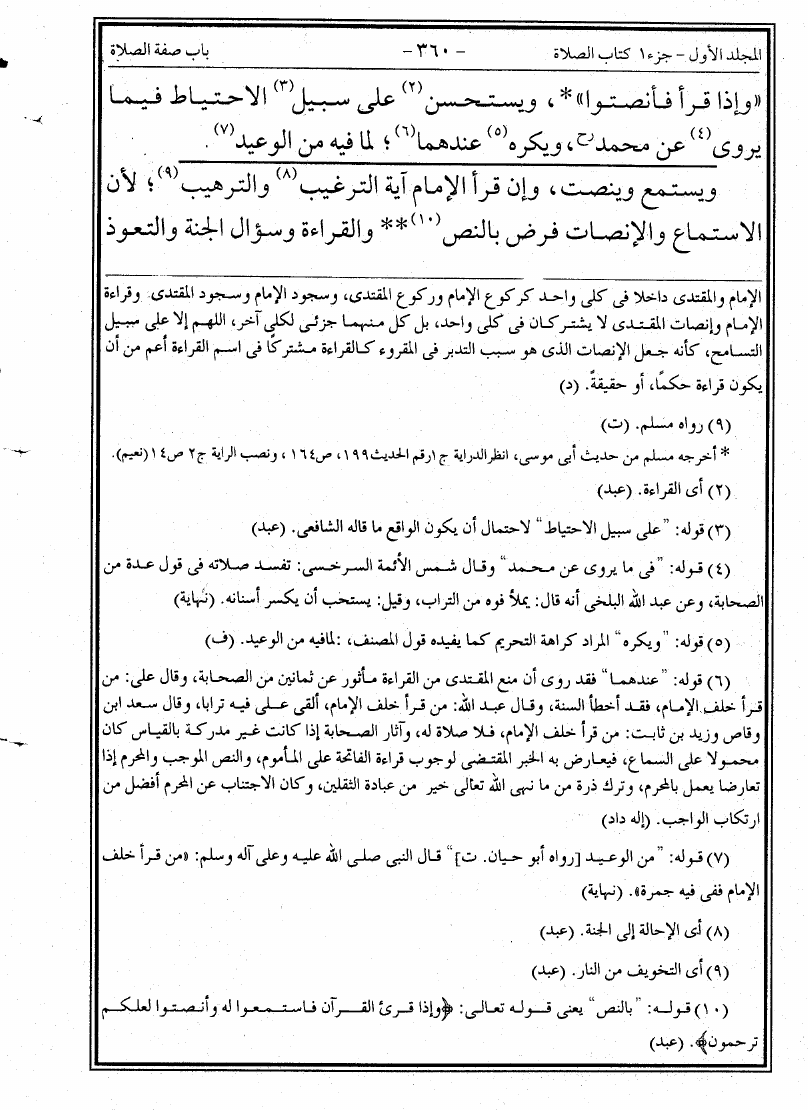 المجلد الأول - جزء١ كتاب الصلاة - ٣٦٠ - باب صفة الصلاة
«وإذا قرأ فأنصتوا»*، ويستحسن(٢) على سبيل(٣) الاحتياط فيما
يروى(٤) عن محمدرح، ويكره(٥) عندهما(٦)؛ لما فيه من الوعيد(٧).
ويستمع وينصت، وإن قرأ الإمام آية الترغيب(٨) والترهيب(٩)؛ لأن
الاستماع والإنصات فرض بالنص(١٠)** والقراءة وسؤال الجنة والتعوذ
الإمام والمقتدى داخلا فى كلى واحد كركوع الإمام وركوع المقتدى، وسجود الإمام وسجود المقتدى وقراءة
الإمام وإنصات المقتدى لا يشتركان فى كلى واحد، بل كل منهما جزئى لكلى آخر، اللهم إلا على سبيل
التسامح، كأنه جعل الإنصات الذى هو سبب التدبر فى المقروء كالقراءة مشتركا فى اسم القراءة أعم من أن
يكون قراءة حكمًا، أو حقيقةً. (د)
(٩) رواه مسلم. (ت)
* أخرجه مسلم من حديث أبى موسى، انظر الدراية ج١ رقم الحديث ١٩٩، ص١٦٤، ونصب الراية ج٢ ص١٤ (نعيم).
(٢) أى القراءة. (عبد)
(٣) قوله: "على سبيل الاحتياط" لاحتمال أن يكون الواقع ما قاله الشافعى. (عبد)
(٤) قوله: "فى ما يروى عن محمد" وقال شمس الأئمة السرخسى: تفسد صلاته فى قول عدة من
الصحابة، وعن عبد الله البلخى أنه قال: يملأ فوه من التراب، وقيل: يستحب أن يكسر أسنانه. (نهاية)
(٥) قوله: "ويكره" المراد كراهة التحريم كما يفيده قول المصنف، :لمافيه من الوعيد. (ف)
(٦) قوله: "عندهما" فقد روى أن منع المقتدى من القراءة مأثور عن ثمانين من الصحابة، وقال على: من
قرأ خلف الإمام، فقد أخطأ السنة، وقال عبد الله: من قرأ خلف الإمام، ألقى على فيه ترابا، وقال سعد ابن
وقاص وزيد بن ثابت: من قرأ خلف الإمام، فلا صلاة له، وآثار الصحابة إذا كانت غير مدركة بالقياس كان
محمولا على السماع، فيعارض به الخبر المقتضى لوجوب قراءة الفاتحة على المأموم، والنص الموجب والمحرم إذا
تعارضا يعمل بالمحرم، وترك ذرة من ما نهى الله تعالى خير من عبادة الثقلين، وكان الاجتناب عن المحرم أفضل من
ارتكاب الواجب. (إله داد)
(٧) قوله: "من الوعيد [رواه أبو حيان. ت]" قال النبى صلى الله عليه وعلى آله وسلم: «من قرأ خلف
الإمام ففى فيه جمرة». (نهاية)
(٨) أى الإحالة إلى الجنة. (عبد)
(٩) أى التخويف من النار. (عبد)
(١٠) قوله: "بالنص" يعنى قوله تعالى: ﴿وإذا قرئ القرآن فاستمعوا له وأنصتوا لعلكم
ترحمون﴾. (عبد)